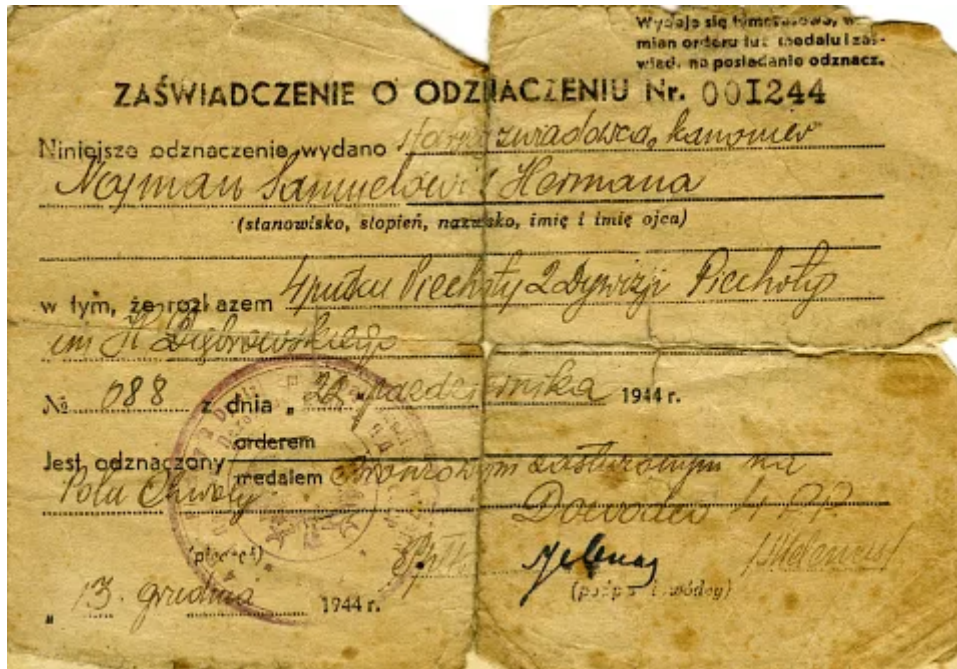 Wydaje się tymczasowo, w
mian orderu lub medalu i zaś-
wiad. na posiadanie odznacz.
ZAŚWIADCZENIE O ODZNACZENIU Nr. 001244
Niniejsze odznaczenie wydano zwiadowca, kanonier
Nejman Samuelowi s. Hermana
(stanowisko, stopień, nazwisko, imię i imię ojca)
w tym, że rozkazem 4 pułku Piechoty 2 Dywizji Piechoty
im H. Dąbrowskiego
№ 088 z dnia „22" października 1944 r.
orderem
Jest odznaczony
medalem Bronzowym zasłużonym na
Polu Chwały
Dowódca 4 P.P.
(pieczęć)
(podpis dowódcy)
„13. grudnia 1944 r.